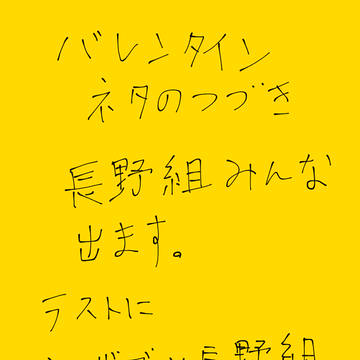 バレンタイン
ネタのつづき
長野組みんな
出ます。
ラストに
長野組